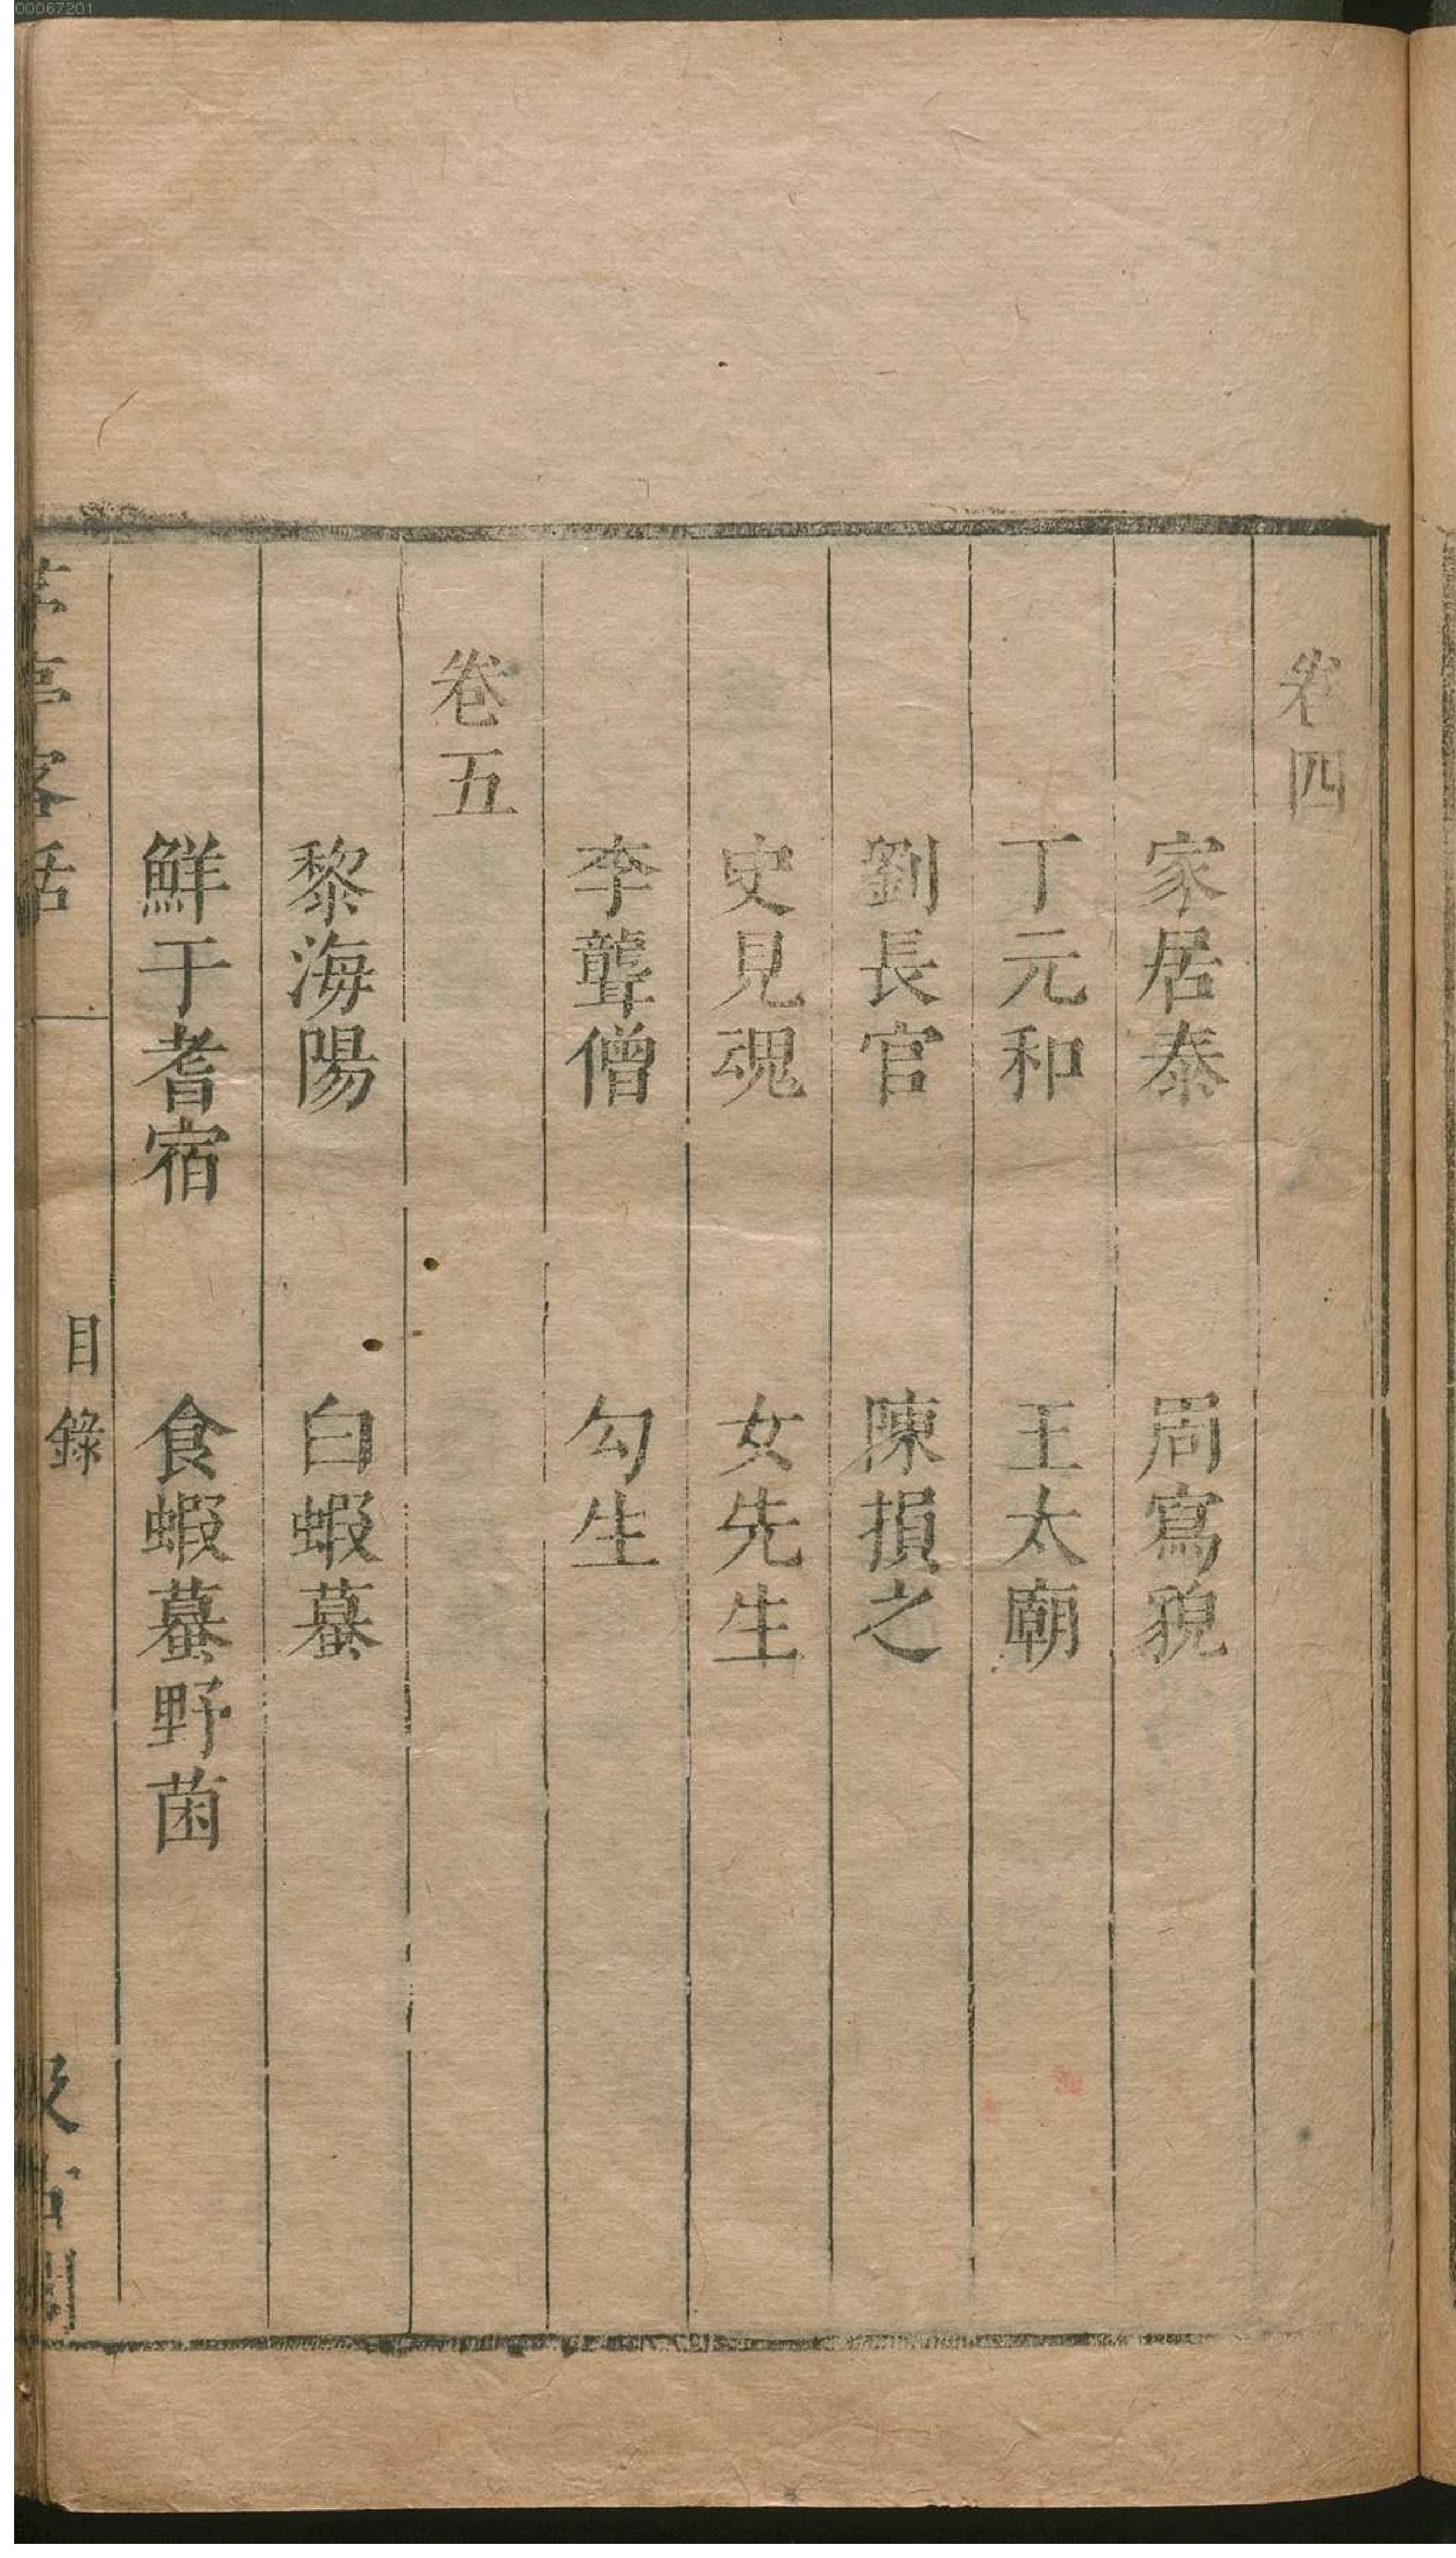 00067201
卷四
家居泰　周寫貌
丁元和　王太廟
劉長官　陳損之
史見魂　女先生
李聾僧　勾生
卷五
黎海陽　白蝦蟇
鮮于耆宿　食蝦蟇野菌
亭客話　目錄　古閣